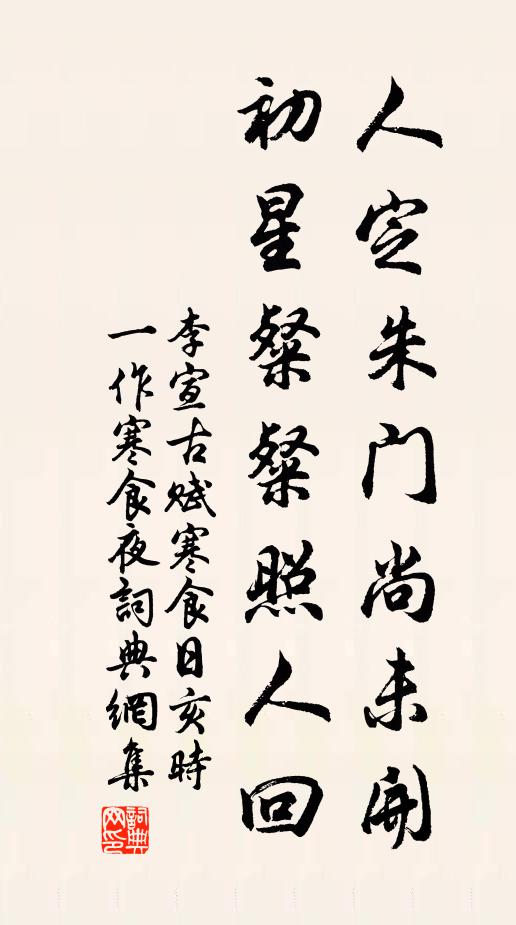 人定朱门尚未開
初星粲粲照人回
李宣古賦寒食日亥時
一作寒食夜詞典網集
詞典网印